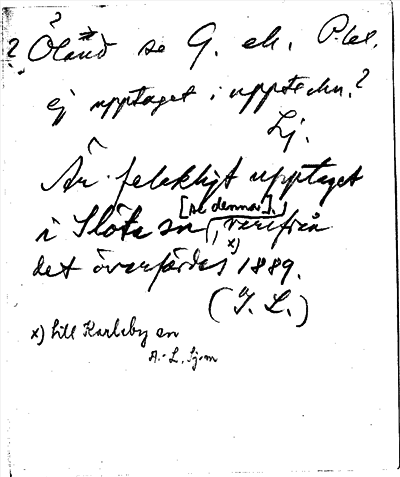 ? Öland se G. ek. P.bl.
ej upptaget i upptekn.?
Lj.
Är felaktigt upptaget
i Slöta sn [se denna], varifrån
x)
det överfördes 1889.
(I. L.)
x) till Karleby sn
A.-L. Sj-m